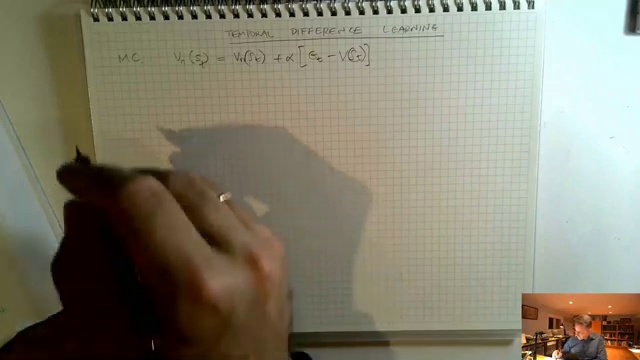 TEMPORAL DIFFERENCE LEARNING
MC. Vπ(St) = Vπ(St) + α [Gt − V(St)]